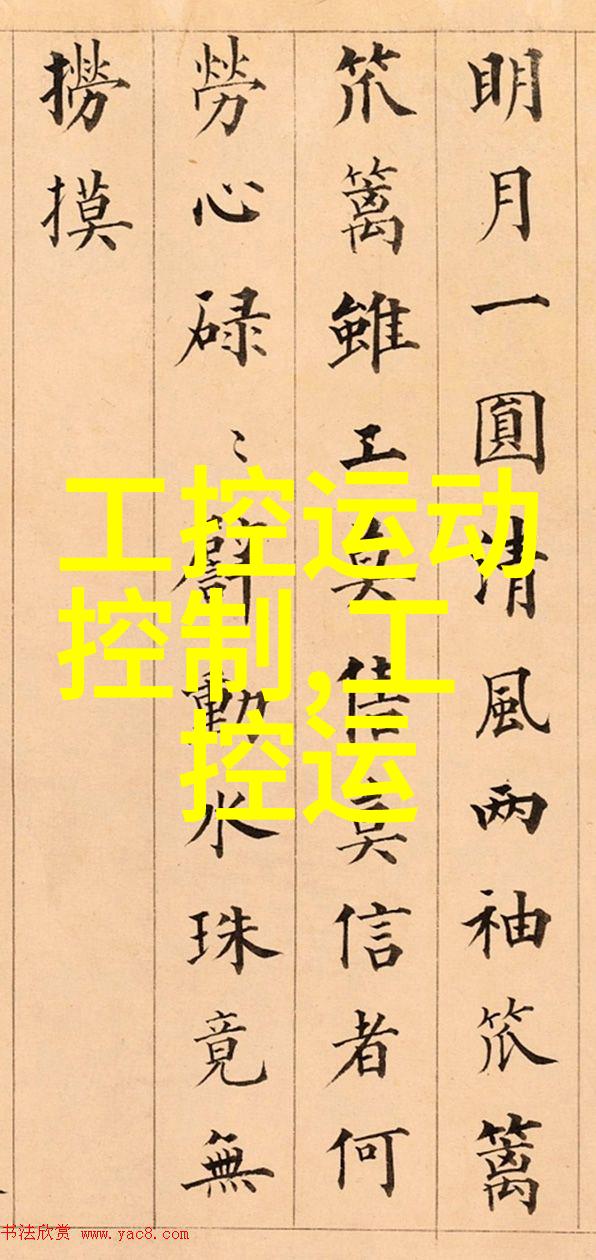 明月一圓清風两袖笊篱
笊篱雖工莫信莫信者何
勞心碌〻動水珠竟無
撈摸
工控运动
控制,工
控运
书法欣赏 www.yac8.com